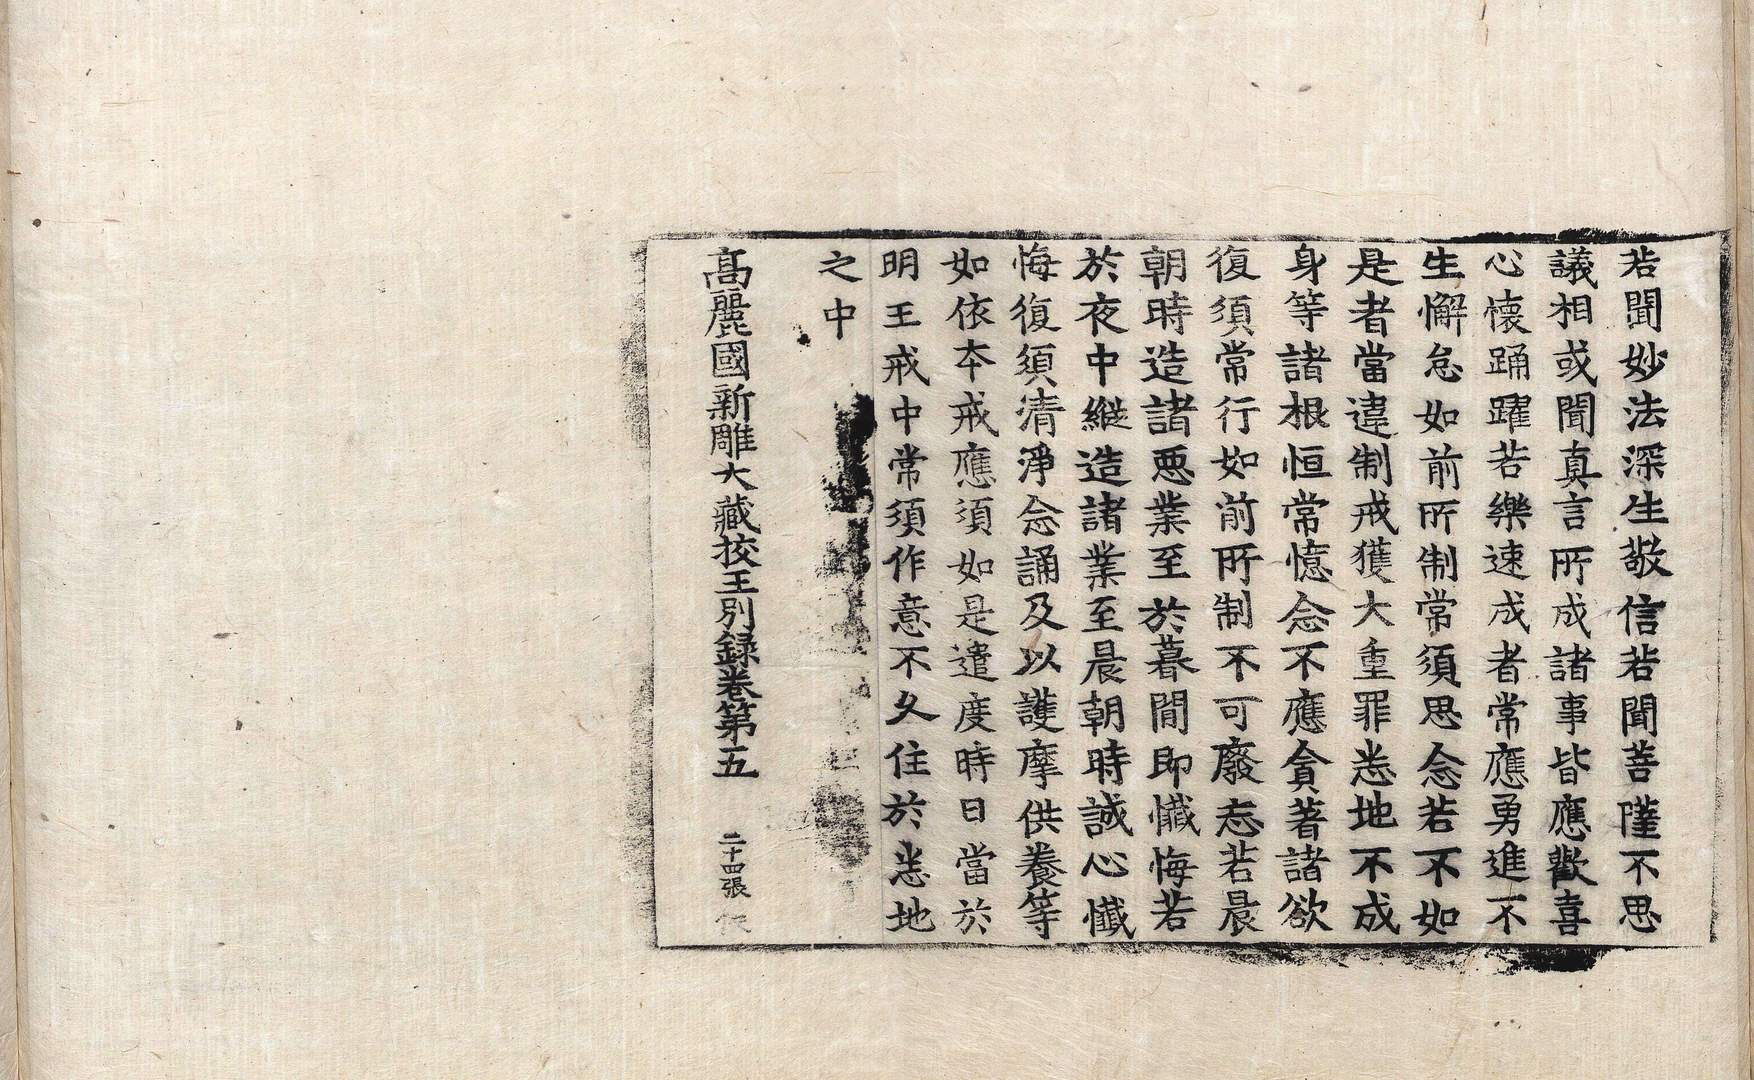 若聞妙法深生敬信若聞菩薩不思
議相或聞真言所成諸事皆應歡喜
心懷踊躍若樂速成者常應勇進不
生懈怠如前所制常須思念若不如
是者當違制戒獲大重罪悉地不成
身等諸根恒常憶念不應貪著諸欲
復須常行如前所制不可廢忘若晨
朝時造諸惡業至於暮間即懺悔若
於夜中縱造諸業至晨朝時誠心懺
悔復須清淨念誦及以護摩供養等
如依本戒應須如是遣度時日當於
明王戒中常須作意不久住於悉地
之中
高麗國新雕大藏挍正別録卷第五 二十四張